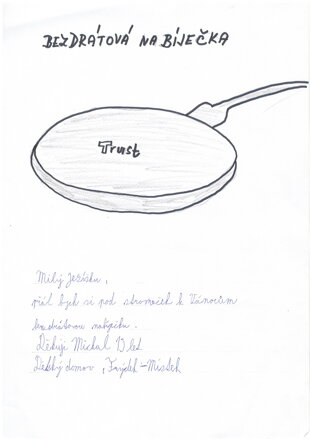 BEZDRÁTOVÁ NABÍJEČKA
Trust
Milý Ježíšku,
přál bych si pod stromeček k Vánocům
bezdrátovou nabíječku.
Děkuji Michal 13 let
Dětský domov, Frýdek-Místek